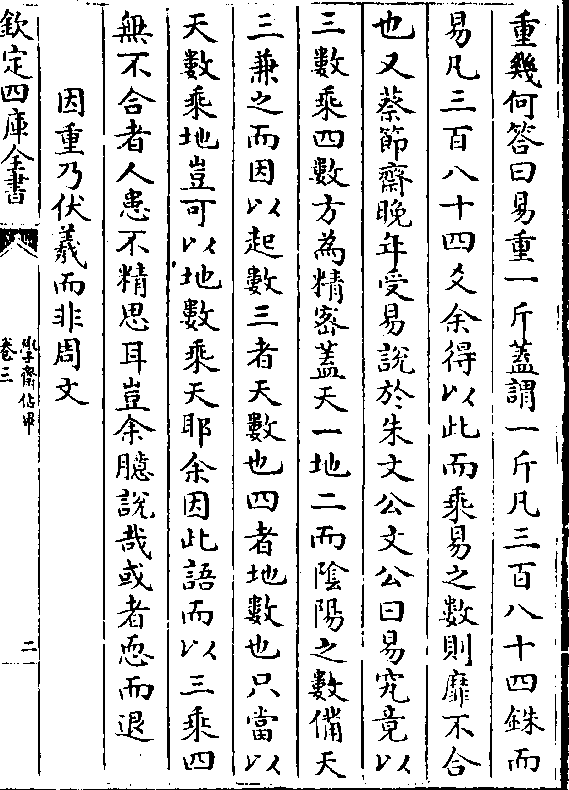 重幾何答曰易重一斤蓋謂一斤凡三百八十四銖而
易凡三百八十四爻余得以此而乘易之數則靡不合
也又蔡節齋晚年受易說於朱文公文公曰易究竟以
三數乘四數方為精密蓋天一地二而陰陽之數備天
三兼之而因以起數三者天數也四者地數也只當以
天數乘地豈可以地數乘天耶余因此語而以三乘四
無不合者人患不精思耳豈余臆說哉或者恧而退
因重乃伏羲而非周文
欽定四庫全書
學齋佔畢
卷三
二